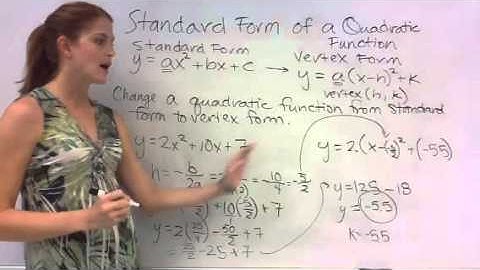 Standard Form of a Quadratic
Function
Standard Form
y = ax² + bx + c →
Vertex Form
y = a(x-h)² + k
vertex (h, k)
Change a quadratic function from standard
form to vertex form.
y = 2x² + 10x + 7
h = -b/2a
= -10/4 = -5/2
+ 7
y = 2(25/4) - 50/2 + 7
- 25 + 7
y = 2(x-(-5/2))² + (-5.5)
y = 12.5 - 18
y = -5.5
k = -5.5